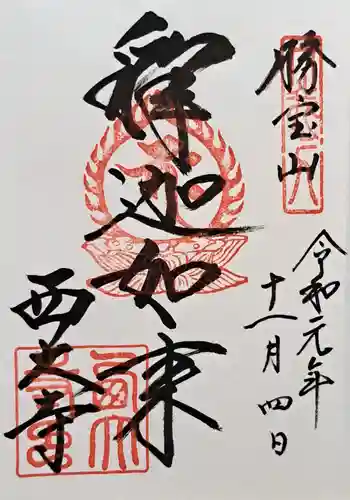 勝宝山
釋迦如来
西大寺
令和元年
十一月四日